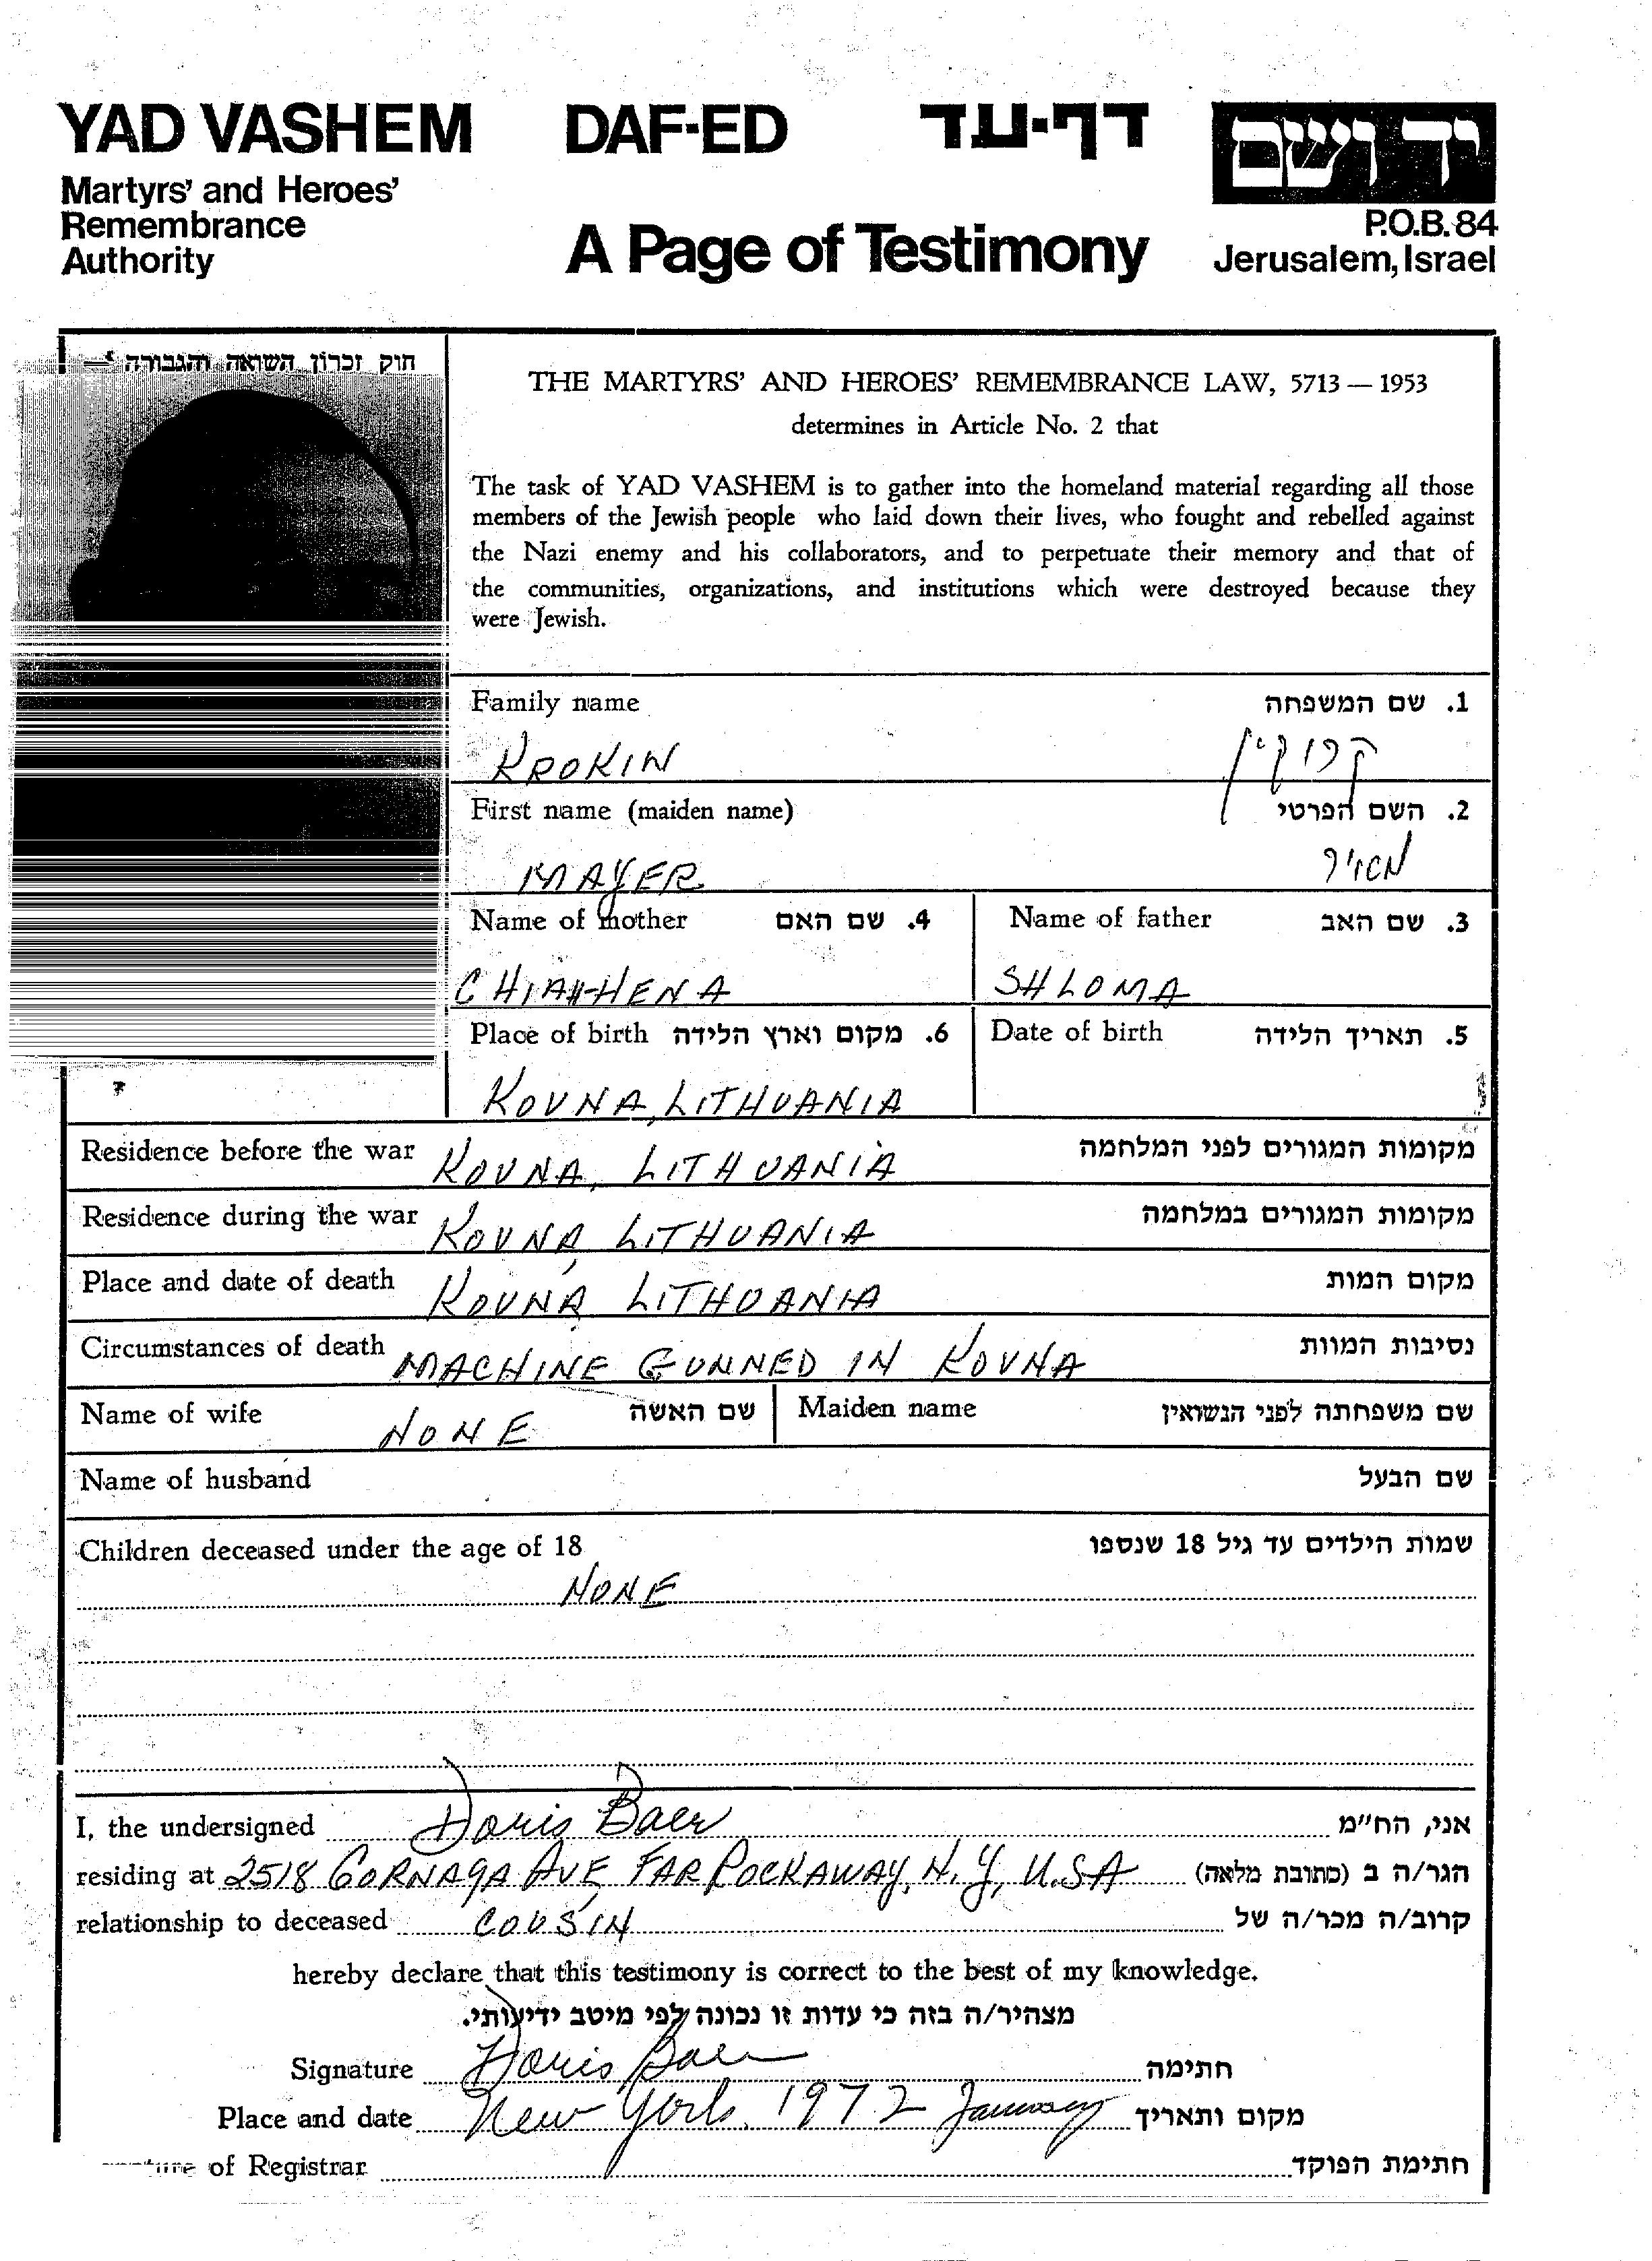 YAD VASHEM DAF-ED דף-עד יד ושם
Martyrs' and Heroes'
Remembrance
Authority
A Page of Testimony
P.O.B. 84
Jerusalem, Israel
חוק זכרון השואה והגבורה —
THE MARTYRS' AND HEROES' REMEMBRANCE LAW, 5713 — 1953
determines in Article No. 2 that
The task of YAD VASHEM is to gather into the homeland material regarding all those
members of the Jewish people who laid down their lives, who fought and rebelled against
the Nazi enemy and his collaborators, and to perpetuate their memory and that of
the communities, organizations, and institutions which were destroyed because they
were Jewish.
Family name 1. שם המשפחה
KROKIN קרוקין
First name (maiden name) 2. השם הפרטי
MAYER מאיר
Name of mother 4. שם האם Name of father 3. שם האב
CHIAH-HENA SHLOMA
Place of birth 6. מקום וארץ הלידה Date of birth 5. תאריך הלידה
KOVNA, LITHUANIA
Residence before the war KOVNA, LITHUANIA מקומות המגורים לפני המלחמה
Residence during the war KOVNA, LITHUANIA מקומות המגורים במלחמה
Place and date of death KOVNA, LITHUANIA מקום המות
Circumstances of death MACHINE GUNNED IN KOVNA נסיבות המוות
Name of wife NONE שם האשה Maiden name שם משפחתה לפני הנשואין
Name of husband שם הבעל
Children deceased under the age of 18 שמות הילדים עד גיל 18 שנספו
NONE
I, the undersigned Doris Baer אני, הח"מ
residing at 2518 CORNAGA AVE, FAR ROCKAWAY, N.Y, U.S.A הגר/ה ב (כתובת מלאה)
relationship to deceased COUSIN קרוב/ה מכר/ה של
hereby declare that this testimony is correct to the best of my knowledge.
מצהיר/ה בזה כי עדות זו נכונה לפי מיטב ידיעותי.
Signature Doris Baer חתימה
Place and date New York, 1972 January מקום ותאריך
of Registrar חתימת הפוקד